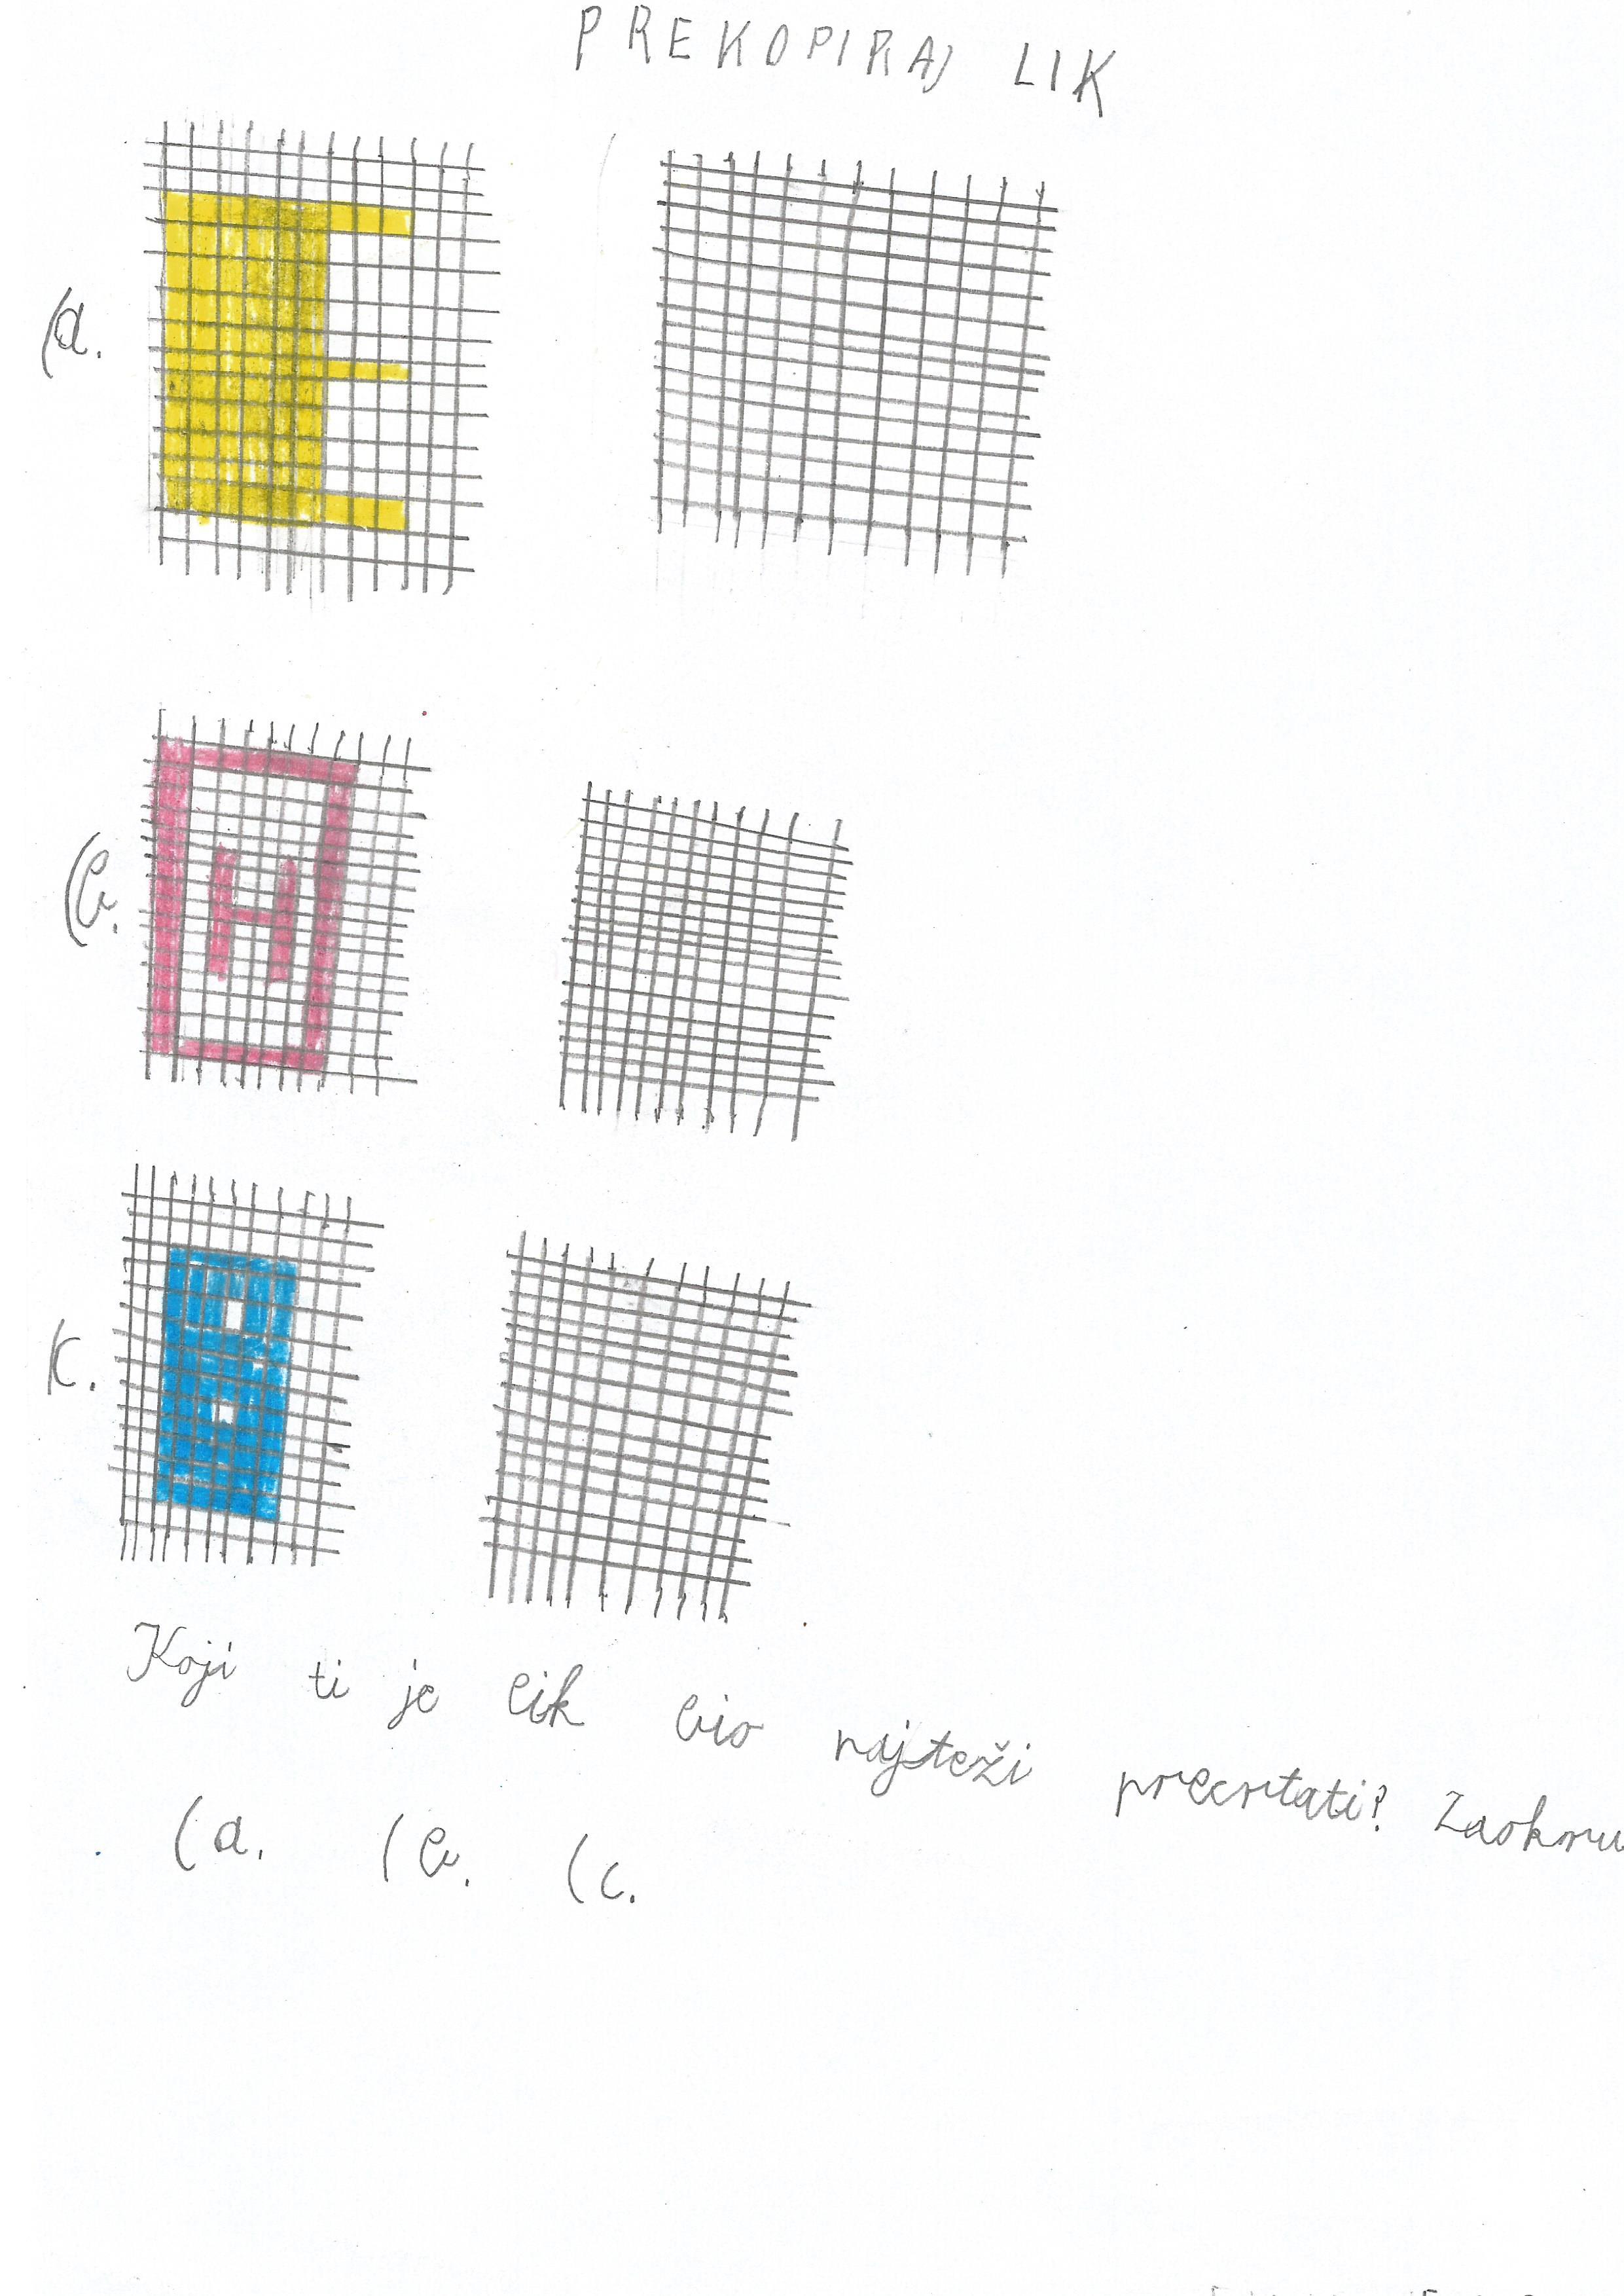 PREKOPIRAJ LIK
(a.
(b.
(c.
Koji ti je lik bio najteži precrtati? Zaokru
(a. (b. (c.